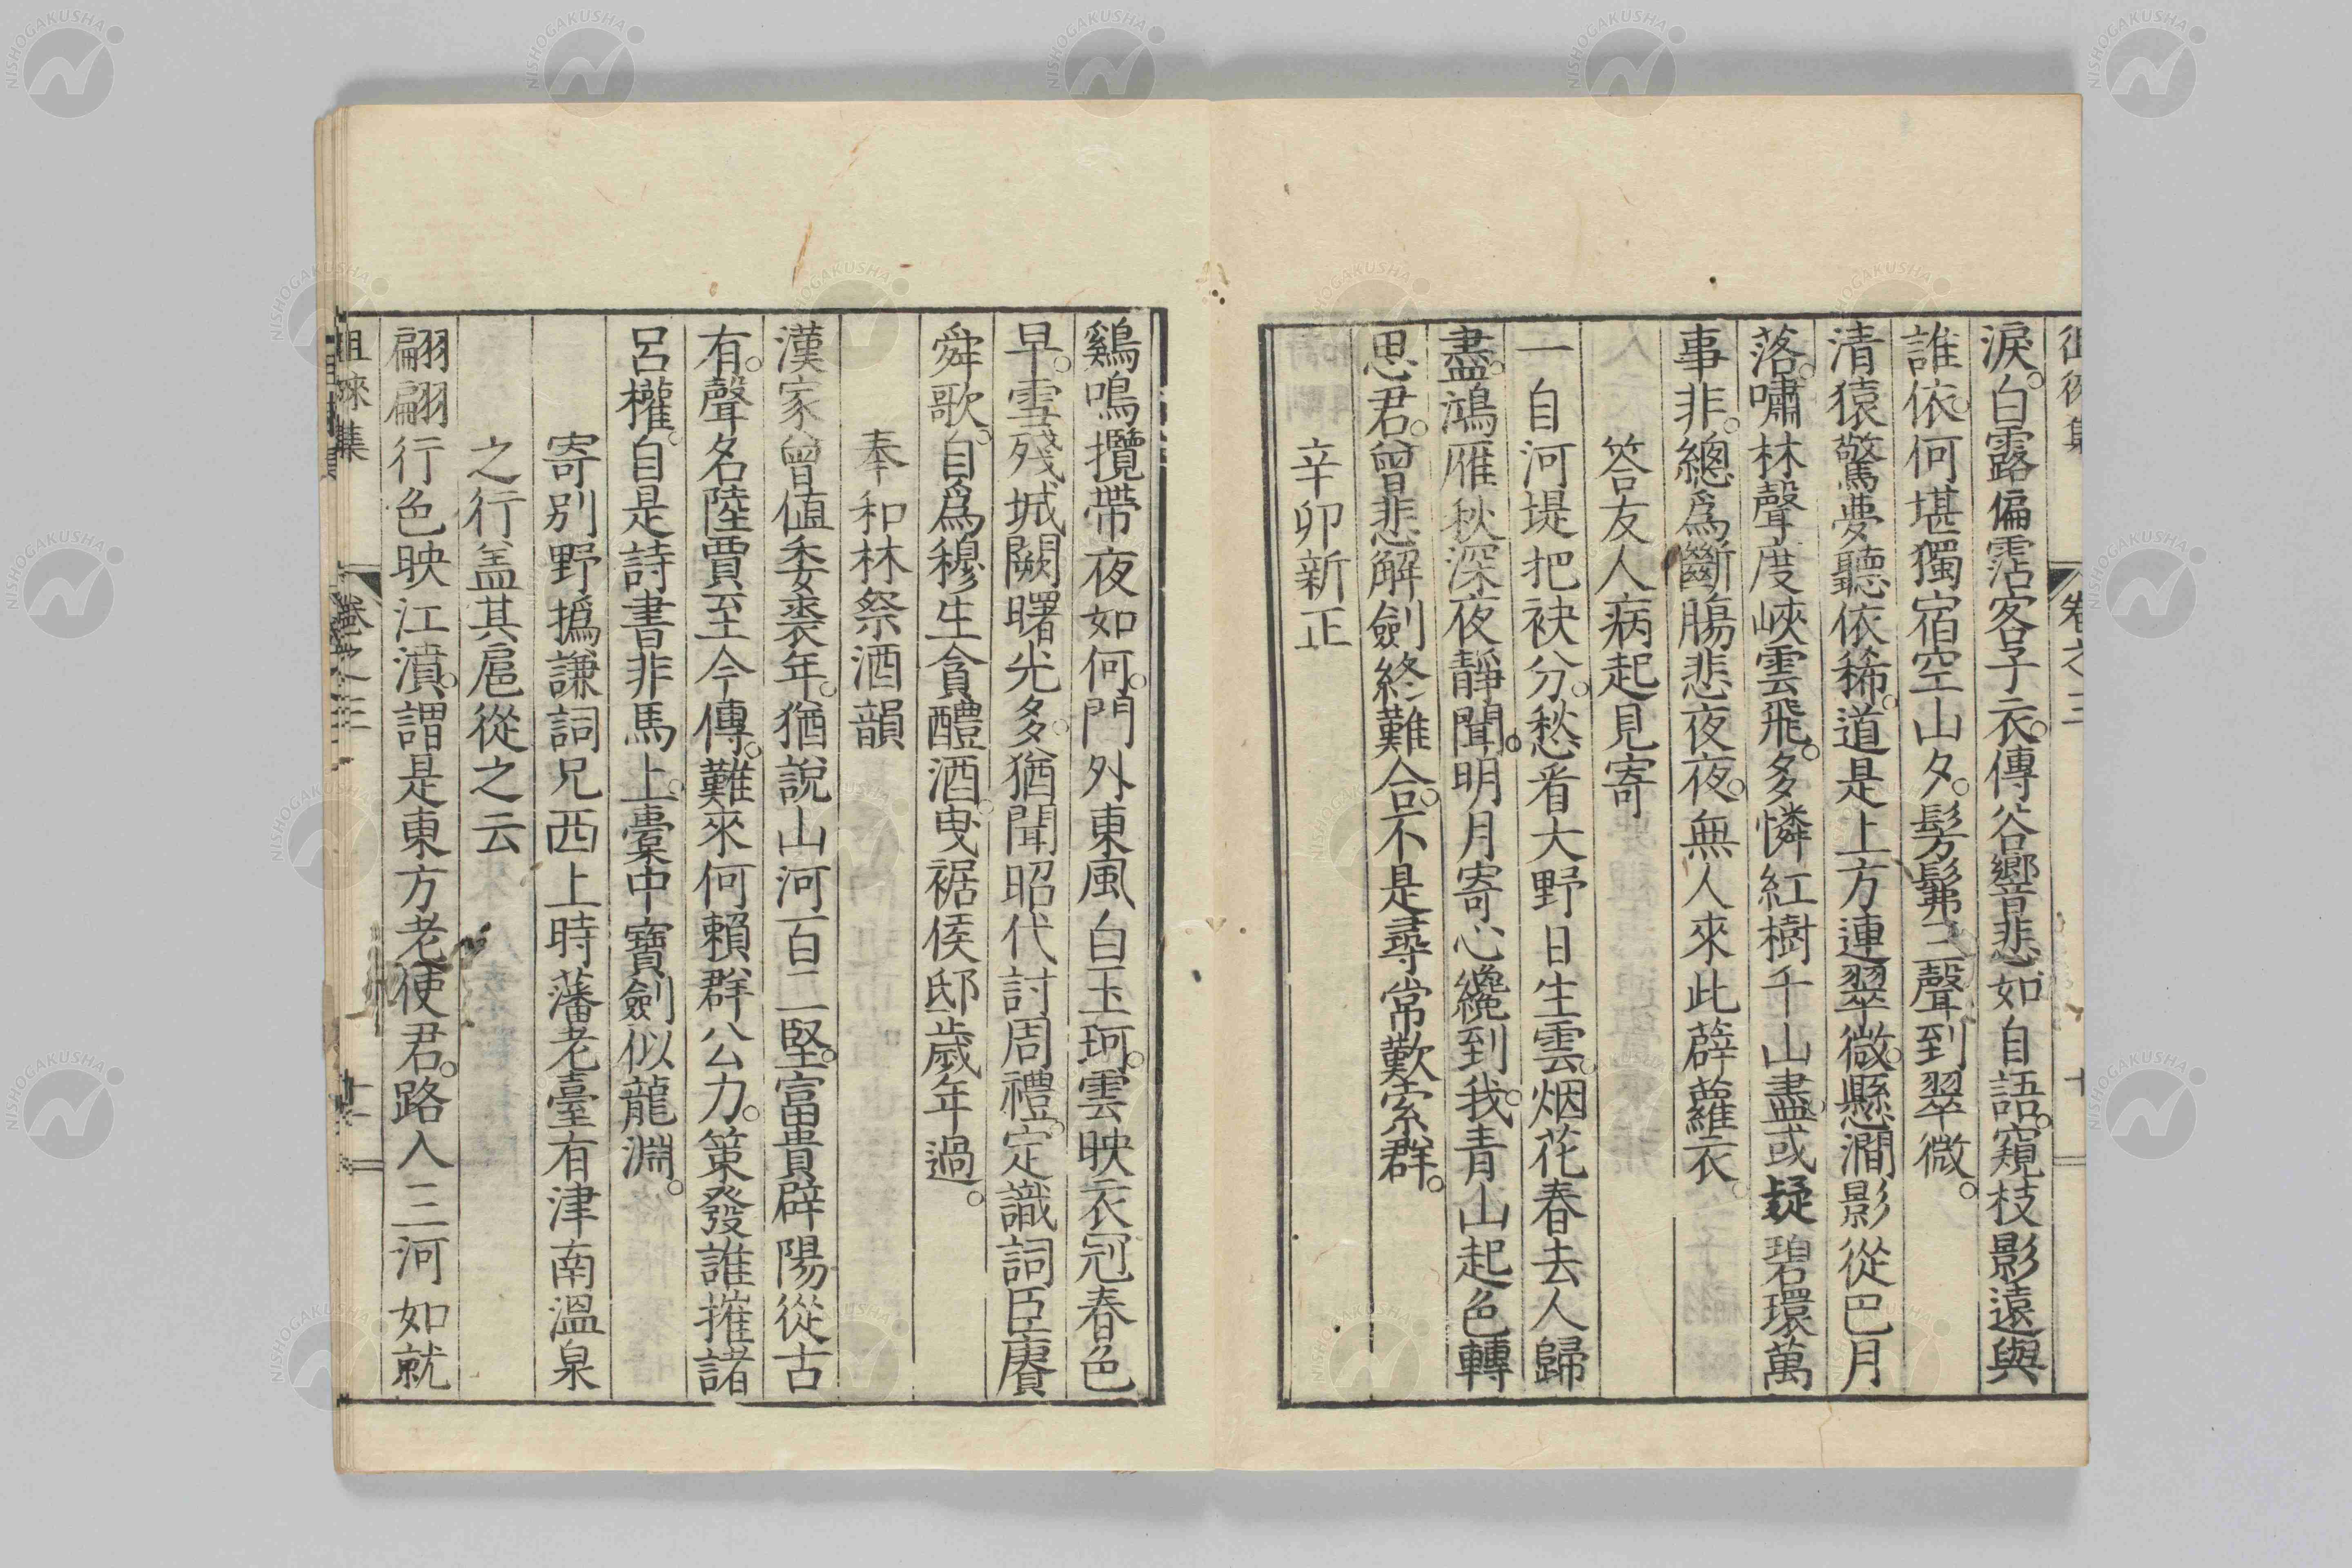 淚。白露偏霑客子衣。傳谷響悲如自語。窺枝影遠與
誰依。何堪獨宿空山夕。髣髴三聲到翠微。
清猿驚夢聽依稀。道是上方連翠微。懸澗影從巴月
落。嘯林聲度峽雲飛。多憐紅樹千山盡。或疑碧環萬
事非。總爲斷膓悲夜夜。無人來此薜蘿衣。
答友人病起見寄
一自河堤把袂分。愁看大野日生雲。烟花春去人歸
盡。鴻雁秋深夜靜聞。明月寄心纔到我。青山起色轉
思君。曾悲解劍終難合。不是尋常歎索群。
辛卯新正
鷄鳴攬帶夜如何。門外東風白玉珂。雲映衣冠春色
早。雪殘城闕曙光多。猶聞昭代討周禮。定識詞臣賡
舜歌。自爲穆生貪醴酒。曳裾侯邸歲年過。
奉和林祭酒韻
漢家曾値委裘年。猶說山河百二堅。富貴辟陽從古
有。聲名陸賈至今傳。難來何賴群公力。策發誰摧諸
呂權。自是詩書非馬上。橐中寶劍似龍淵。
寄別野撝謙詞兄西上時藩老臺有津南溫泉
之行盖其扈從之云
翩翩行色映江濆。謂是東方老使君。路入三河如就
徂徠集 卷之三 十一